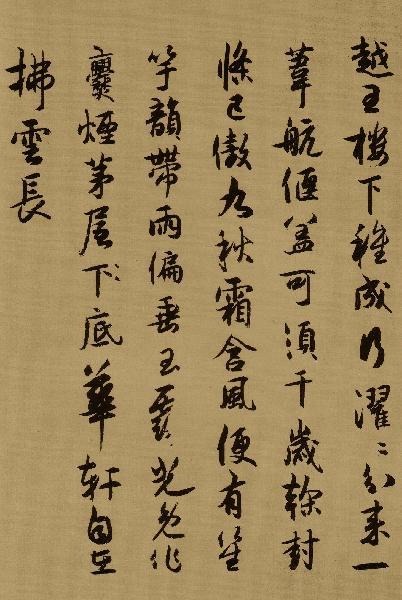 越王樓下種成行濯〻分来一
葦航偃盖可須千歲榦封
條已傲九秋霜含風便有笙
竽韻帶雨偏垂玉露光免作
爨煙茅屋下底華軒自在
拂雲長